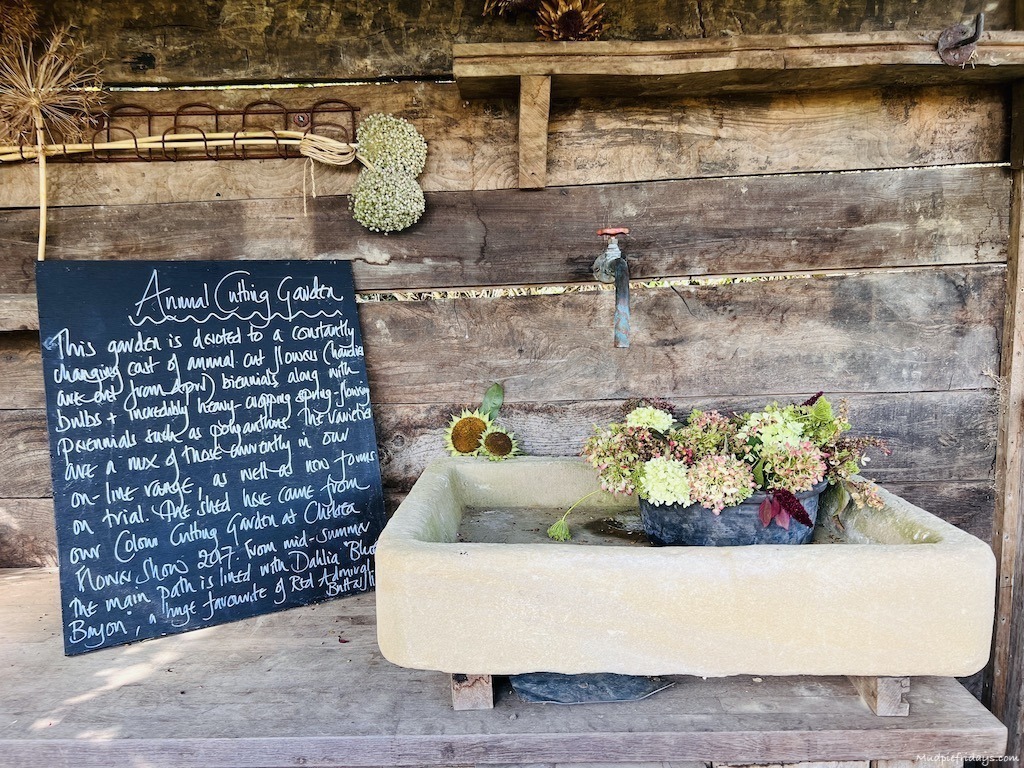 Annual Cutting Garden
This garden is devoted to a constantly
changing cast of annual cut flowers (hardies
are out from April) biennials along with
bulbs + incredibly heavy-cropping spring-flowering
perennials such as polyanthus. The varieties
are a mix of those currently in our
on-line range as well as new forms
on trial. The shed have came from
our Colour Cutting Garden at Chelsea
Flower Show 2017. From mid-summer
the main path is lined with Dahlia 'Bl
Bayou', a huge favourite of Red Admiral
Butterfli
Mudpiefridays.com